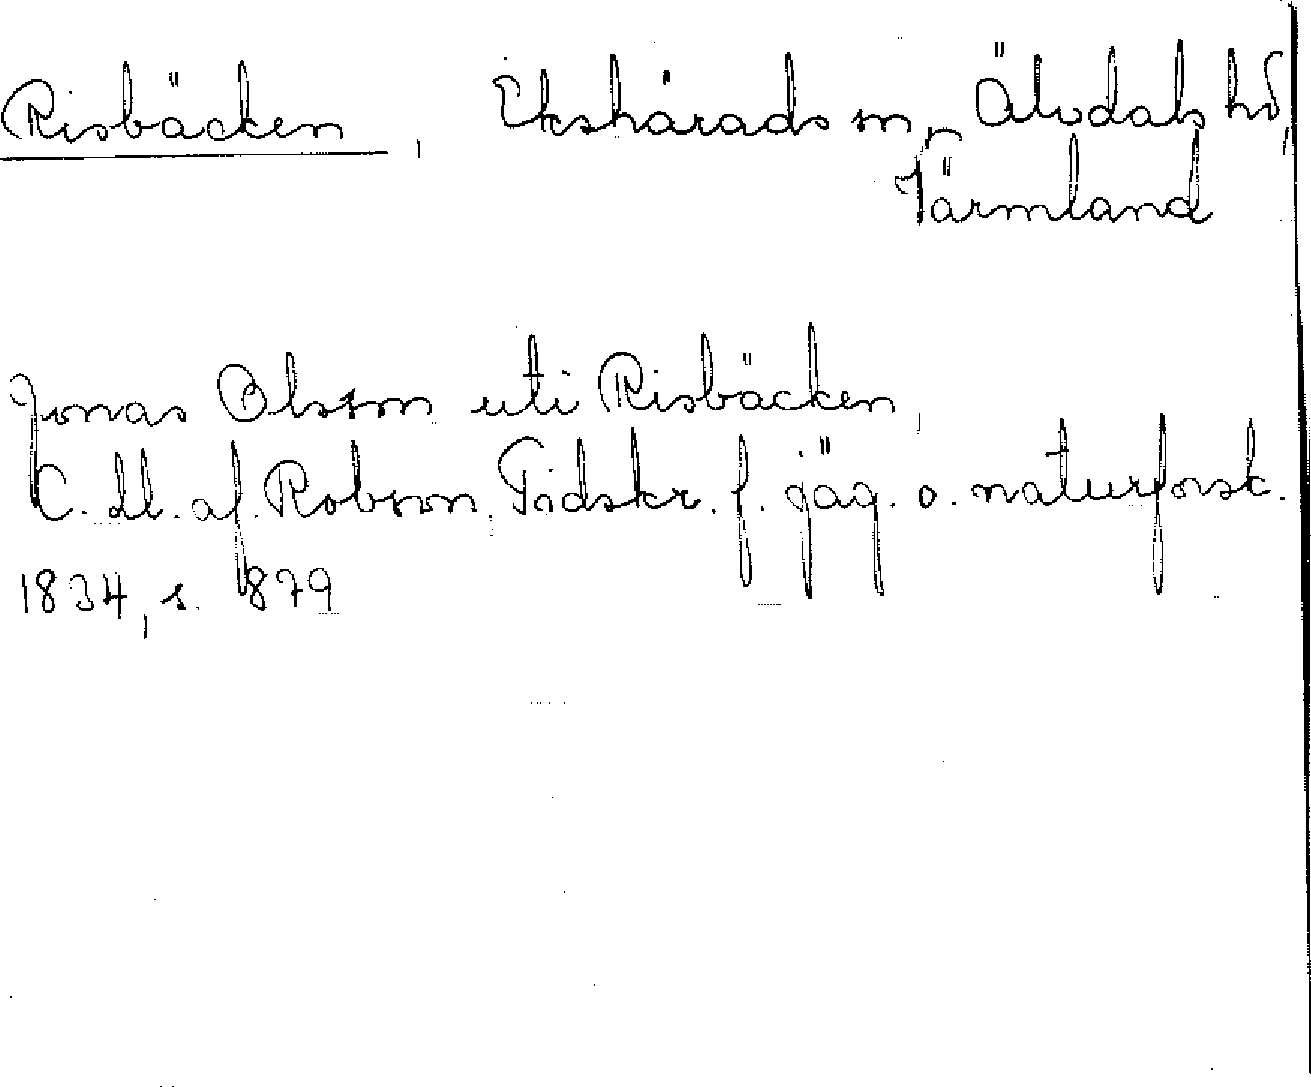 Risbäcken, Ekshärads sn, Älvdals hd,
Värmland
Jonas Olsson uti Risbäcken,
C. U. af. Robson. Tidskr. f. jäg. o. naturforsk.
1834, s. 879